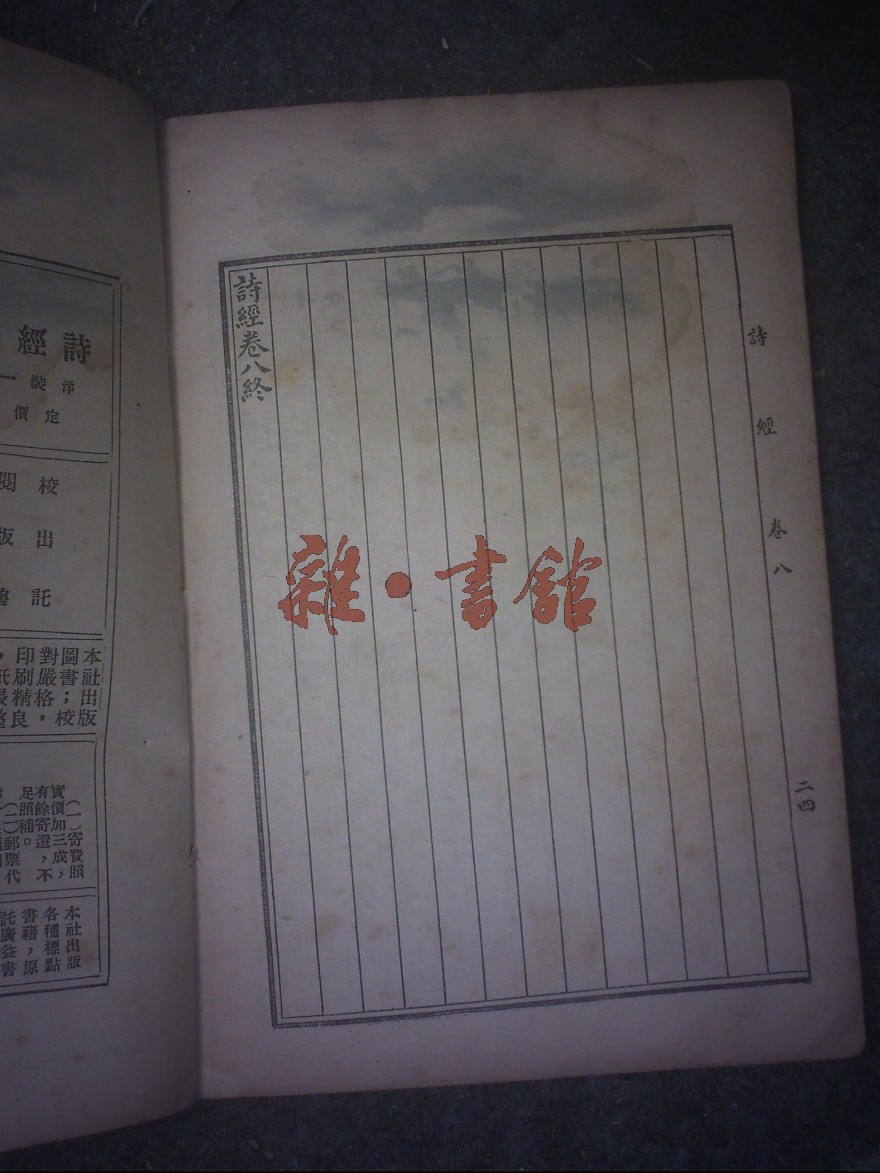 詩經
卷八
二四
詩經卷八終
雜·書館
詩經
洋裝一
定價
校閱
出版
託
本社出版
圖書；校
對嚴格，
印刷精良
（一）寄費照
實價加三成，
有餘寄還，不
足照補。
（二）郵票代
本社出版
各種標點
書籍，原
託廣益書